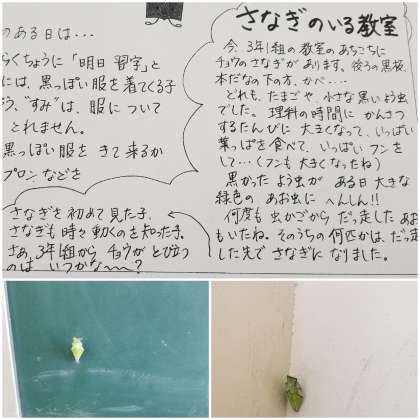 のある日は…
らくちょうに「明日 習字」と
には、黒っぽい服を着てくる子
う、"すみ"は、服に ついて
とれません。
黒っぽい服を きて 来るか
プロン などを
さなぎのいる教室
今、3年1組の教室のあちこちに
チョウのさなぎが あります。後ろの黒板、
本だなの下の方、かべ‥‥
どれも、たまごや、小さな黒いよう虫
でした。理科の時間に かんさつ
するたんびに 大きくなって、いっぱい
葉っぱを食べて、いっぱい フンを
して…(フンも大きくなったね)
黒かった よう虫が ある日 大きな
緑色の あお虫に へんしん!!
何度も 虫かごから だっ走した あお
もいたね。そのうちの何匹かは、だっ走
した先で さなぎに なりました。
さなぎを 初めて見た子、
さなぎも 時々 動くのを知った子。
さあ、3年1組から チョウが とび立つ
のは いつかな〜〜?